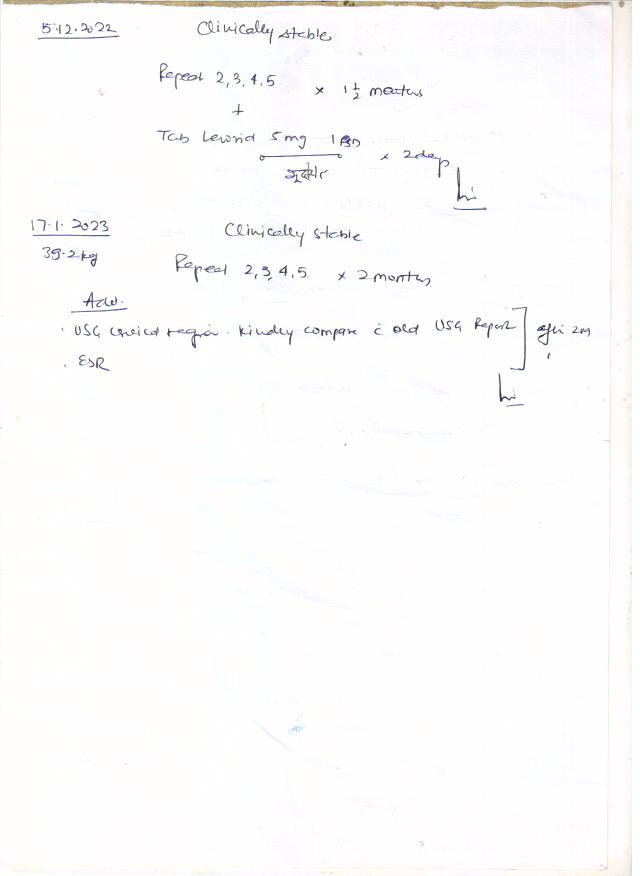 5.12.2022 Clinically stable
Repeat 2, 3, 4, 5 × 1 ½ months
+
Tab 5 mg 1 BD × 2 days
17.1.2023 Clinically stable
39.2 kg
Repeat 2, 3, 4, 5 × 2 months
Adv.
. USG region. Kindly compare c̄ old USG Report ] after 2m
. ESR